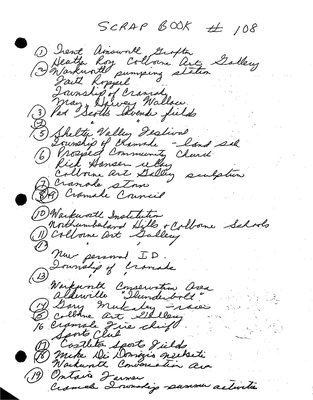 SCRAP BOOK # 108
1 Trent Ainsworth Grafton
Heather Roy Colborne Art Gallery
2 Warkworth pumping station
Faith Roppel
Township of Cramahe
Mary, Harvey Wallace
3 Pad Scotts lavender fields
4
5 Shelter Valley Festival
Township of Cramahe - land sale
6 Prospect Community Church
Rick Hansen relay
Colborne Art Gallery sculption
7 Cramahe storm
8 9 Cramahe Council
10 Warkworth Institution
Northumberland Hills & Colborne Schools
11 Colborne Art Gallery
12 " "
New personal I.D.
Township of Cramahe
13 " "
Warkworth Conservation Area
Alderville "Thunderbolt"
14 Gary Mulcahey - races
15 Colborne Art Gallery
16 Cramahe Fire chief
Sports Club
17 Castleton Sports Fields
18 Mike Di Donizio website
Warkworth Conservation Area
19 Ontario Farmer
Cramahe Township summer activities